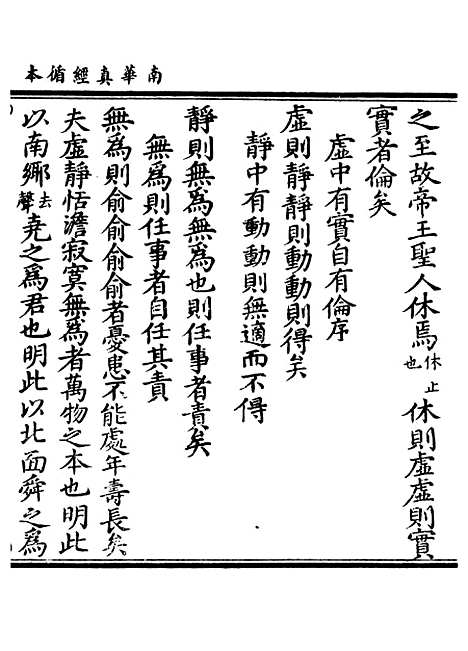 南華真經循本
之至故帝王聖人休焉休止也休則虛虛則實
實者倫矣
虛中有實自有倫序
虛則靜靜則動動則得矣
靜中有動動則無適而不得
靜則無為無為也則任事者責矣
無為則任事者自任其責
無為則俞俞俞俞者憂患不能處年壽長矣
夫虛靜恬澹寂寞無為者萬物之本也明此
以南鄉去聲堯之為君也明此以北面舜之為